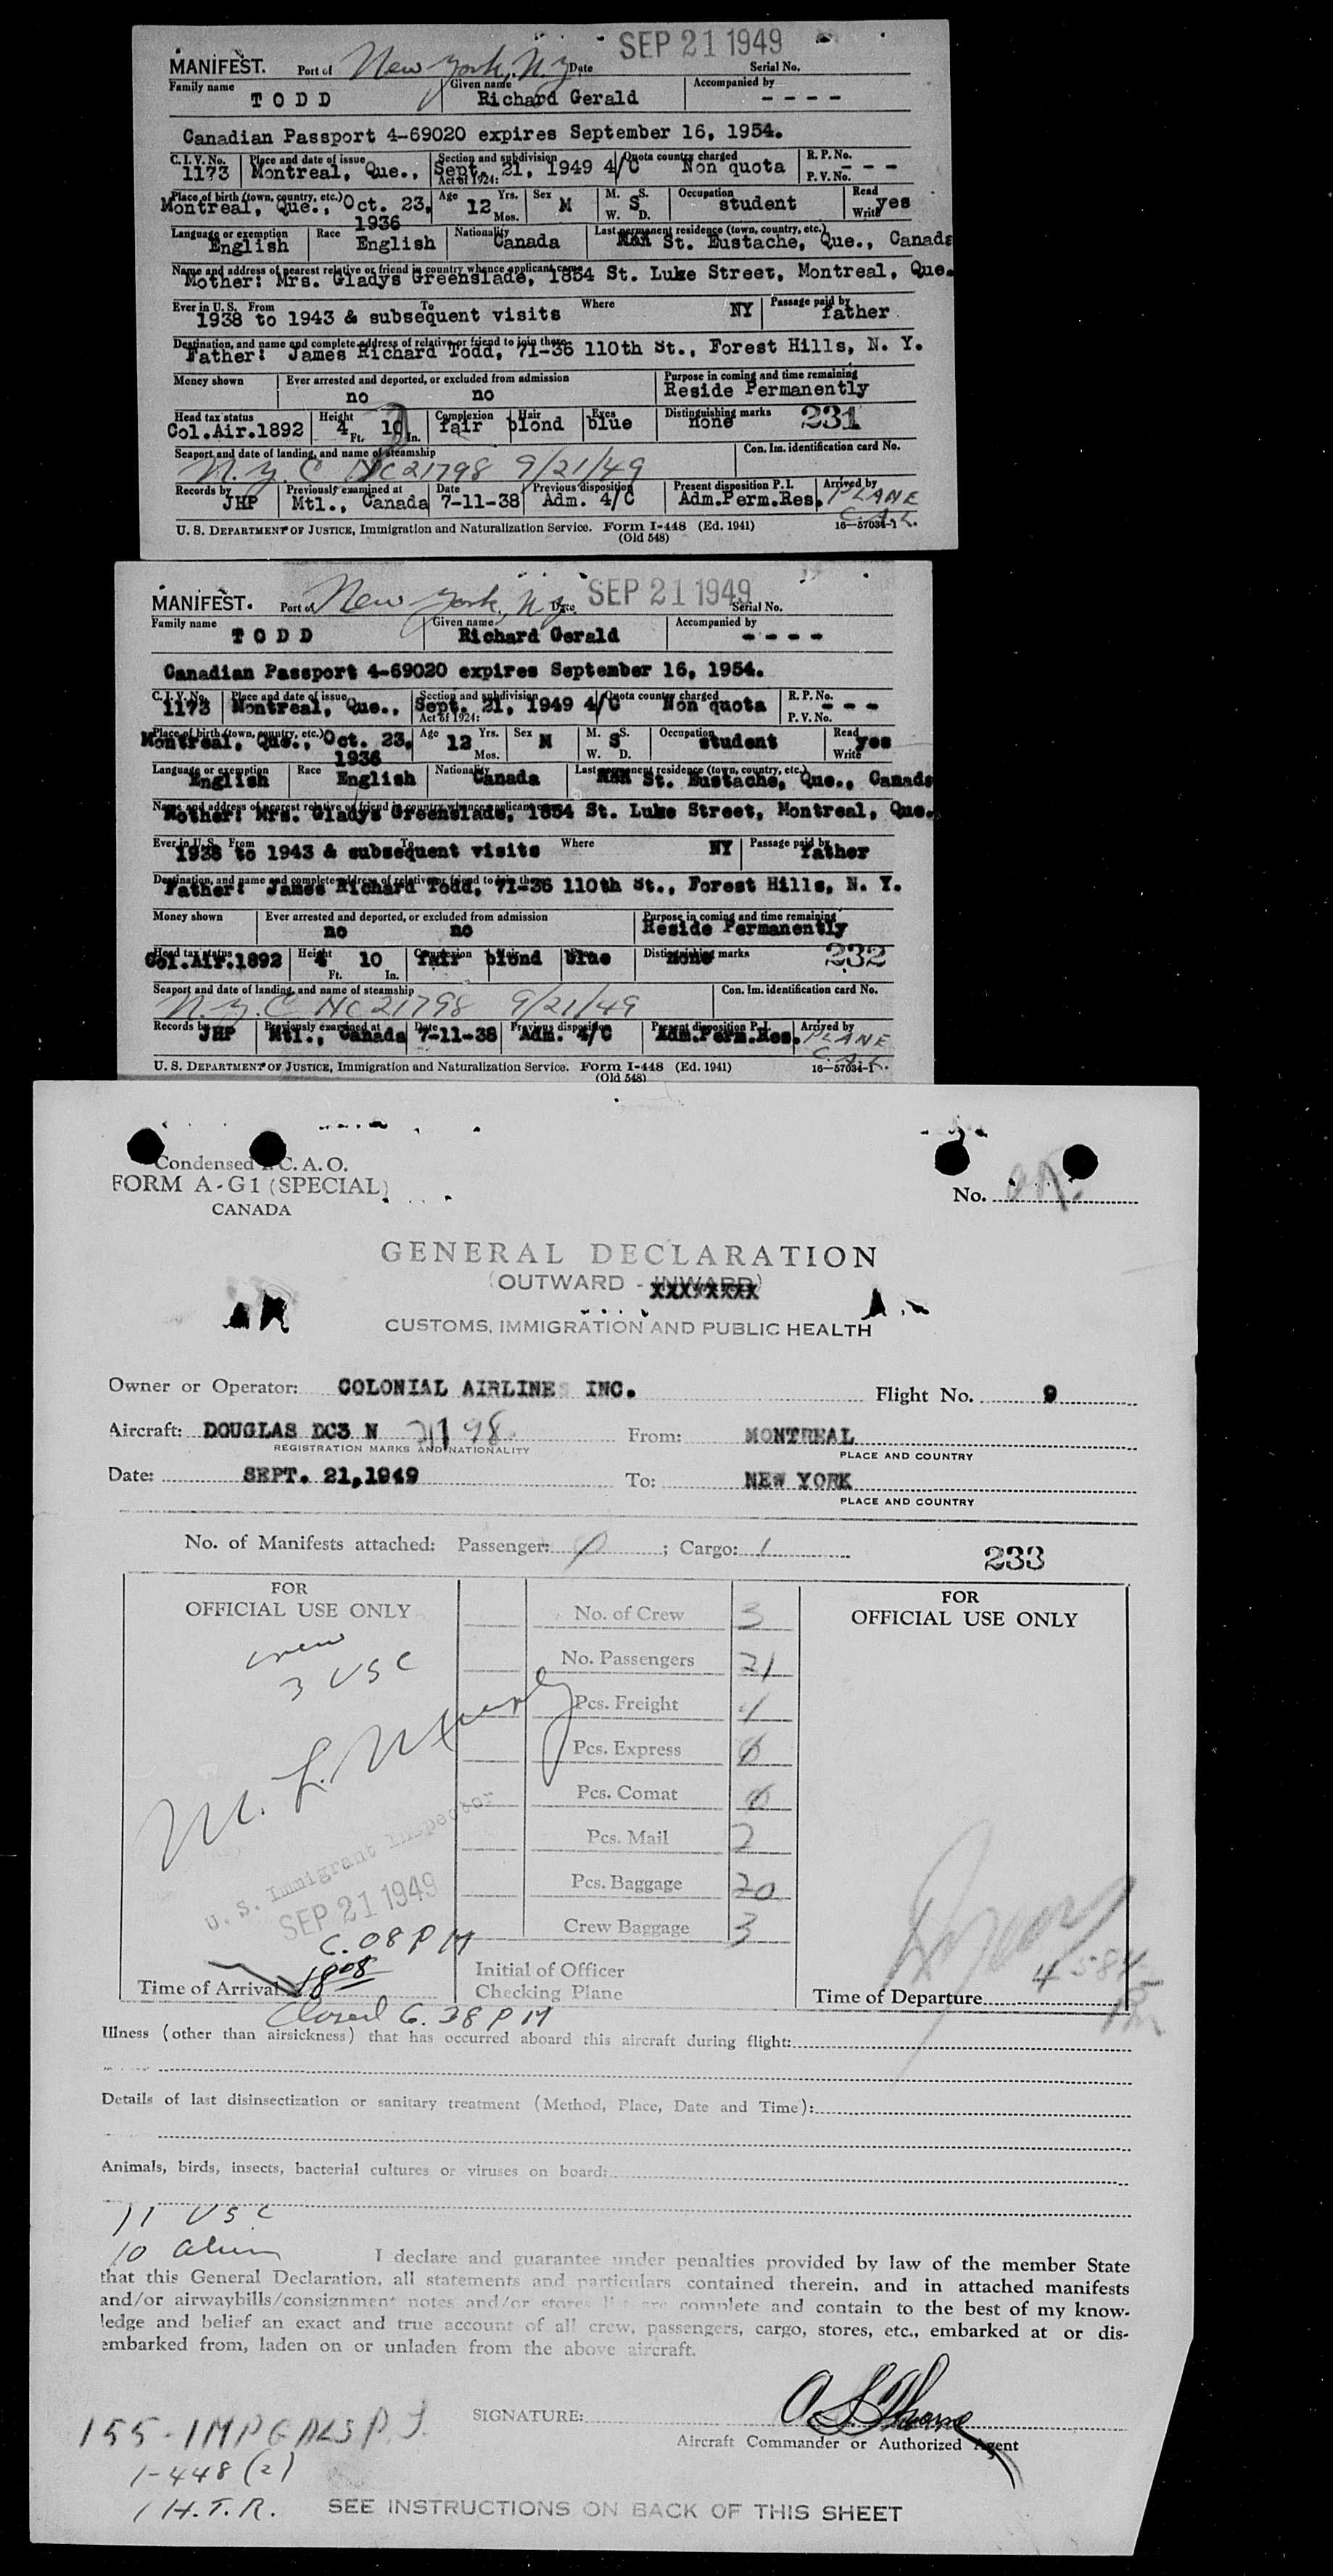 SEP 21 1949
MANIFEST. Port of New York, N.Y. Date Serial No.
Family name Given name Accompanied by
TODD Richard Gerald - - - -
Canadian Passport 4-69020 expires September 16, 1954.
C. I. V. No. Place and date of issue Section and subdivision Quota country charged R. P. No.
1173 Montreal, Que., Sept. 21, 1949 4/C Non quota - - -
Act of 1924: P. V. No.
Place of birth (town, country, etc.) Age Yrs. Sex M. S. Occupation Read
Montreal, Que., Oct. 23, 12 M S student yes
1936 Mos. W. D. Write
Language or exemption Race Nationality Last permanent residence (town, country, etc.)
English English Canada St. Eustache, Que., Canada
Name and address of nearest relative or friend in country whence applicant came
Mother: Mrs. Gladys Greenslade, 1854 St. Luke Street, Montreal, Que.
Ever in U. S. From To Where Passage paid by
1938 to 1943 & subsequent visits NY father
Destination, and name and complete address of relative or friend to join there
Father: James Richard Todd, 71-36 110th St., Forest Hills, N. Y.
Money shown Ever arrested and deported, or excluded from admission Purpose in coming and time remaining
no no Reside Permanently
Head tax status Height Complexion Hair Eyes Distinguishing marks 231
Col.Air.1892 4 Ft. 10 In. fair blond blue none
Seaport and date of landing, and name of steamship Con. Im. identification card No.
N.Y.C NC21798 9/21/49
Records by Previously examined at Date Previous disposition Present disposition P. I. Arrived by
JHP Mtl., Canada 7-11-38 Adm. 4/C Adm.Perm.Res. PLANE
C.A.L.
U. S. DEPARTMENT OF JUSTICE, Immigration and Naturalization Service. Form I-448 (Ed. 1941) 16—57034-1
(Old 548)
SEP 21 1949
MANIFEST. Port of New York, N.Y. Date Serial No.
Family name Given name Accompanied by
TODD Richard Gerald - - - -
Canadian Passport 4-69020 expires September 16, 1954.
C. I. V. No. Place and date of issue Section and subdivision Quota country charged R. P. No.
1173 Montreal, Que., Sept. 21, 1949 4/C Non quota - - -
Act of 1924: P. V. No.
Place of birth (town, country, etc.) Age Yrs. Sex M. S. Occupation Read
Montreal, Que., Oct. 23, 12 M S student yes
1936 Mos. W. D. Write
Language or exemption Race Nationality Last permanent residence (town, country, etc.)
English English Canada St. Eustache, Que., Canada
Name and address of nearest relative or friend in country whence applicant came
Mother: Mrs. Gladys Greenslade, 1854 St. Luke Street, Montreal, Que.
Ever in U. S. From To Where Passage paid by
1938 to 1943 & subsequent visits NY father
Destination, and name and complete address of relative or friend to join there
Father: James Richard Todd, 71-36 110th St., Forest Hills, N. Y.
Money shown Ever arrested and deported, or excluded from admission Purpose in coming and time remaining
no no Reside Permanently
Head tax status Height Complexion Hair Eyes Distinguishing marks 232
Col.Air.1892 4 Ft. 10 In. fair blond blue none
Seaport and date of landing, and name of steamship Con. Im. identification card No.
N.Y.C NC21798 9/21/49
Records by Previously examined at Date Previous disposition Present disposition P. I. Arrived by
JHP Mtl., Canada 7-11-38 Adm. 4/C Adm.Perm.Res. PLANE
C.A.L.
U. S. DEPARTMENT OF JUSTICE, Immigration and Naturalization Service. Form I-448 (Ed. 1941) 16—57034-1
(Old 548)
Condensed I.C.A.O.
FORM A-G1 (SPECIAL)
CANADA
No.
GENERAL DECLARATION
(OUTWARD - INWARD)
CUSTOMS, IMMIGRATION AND PUBLIC HEALTH
Owner or Operator: COLONIAL AIRLINES INC. Flight No. 9
Aircraft: DOUGLAS DC3 N 21798 From: MONTREAL
REGISTRATION MARKS AND NATIONALITY PLACE AND COUNTRY
Date: SEPT. 21,1949 To: NEW YORK
PLACE AND COUNTRY
No. of Manifests attached: Passenger: 0 ; Cargo: 1 233
FOR OFFICIAL USE ONLY
crew
3 USC
U. S. Immigrant Inspector
SEP 21 1949
6.08 PM
Time of Arrival 1808
Closed 6.38 PM
No. of Crew 3
No. Passengers 21
Pcs. Freight 1
Pcs. Express 0
Pcs. Comat 0
Pcs. Mail 2
Pcs. Baggage 20
Crew Baggage 3
Initial of Officer
Checking Plane
FOR OFFICIAL USE ONLY
Time of Departure
Illness (other than airsickness) that has occurred aboard this aircraft during flight:
Details of last disinsectization or sanitary treatment (Method, Place, Date and Time):
Animals, birds, insects, bacterial cultures or viruses on board:
11 USC
10 alien
I declare and guarantee under penalties provided by law of the member State
that this General Declaration, all statements and particulars contained therein, and in attached manifests
and/or airwaybills/consignment notes and/or stores list are complete and contain to the best of my know-
ledge and belief an exact and true account of all crew, passengers, cargo, stores, etc., embarked at or dis-
embarked from, laden on or unladen from the above aircraft.
SIGNATURE:
Aircraft Commander or Authorized Agent
1-448 (2)
1 H.T.R.
SEE INSTRUCTIONS ON BACK OF THIS SHEET